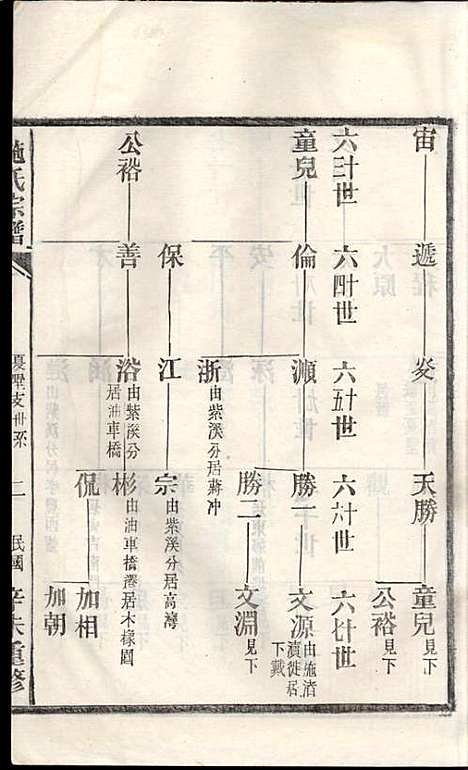 宙 遞 炎 天勝 童兒見下 公裕見下
六三世 六四世 六五世 六六世 六七世
童兒 倫 瀕 勝一 文源由施渚瀆徙居下戴
勝二 文淵見下
浙由紫溪分居蔣冲
保 江 宗由紫溪分居高灣
公裕 善 浴由紫溪分居油車橋 彬由油車橋遷居木樣園
侃 加相
加朝
施氏宗譜 二 民國辛未重修